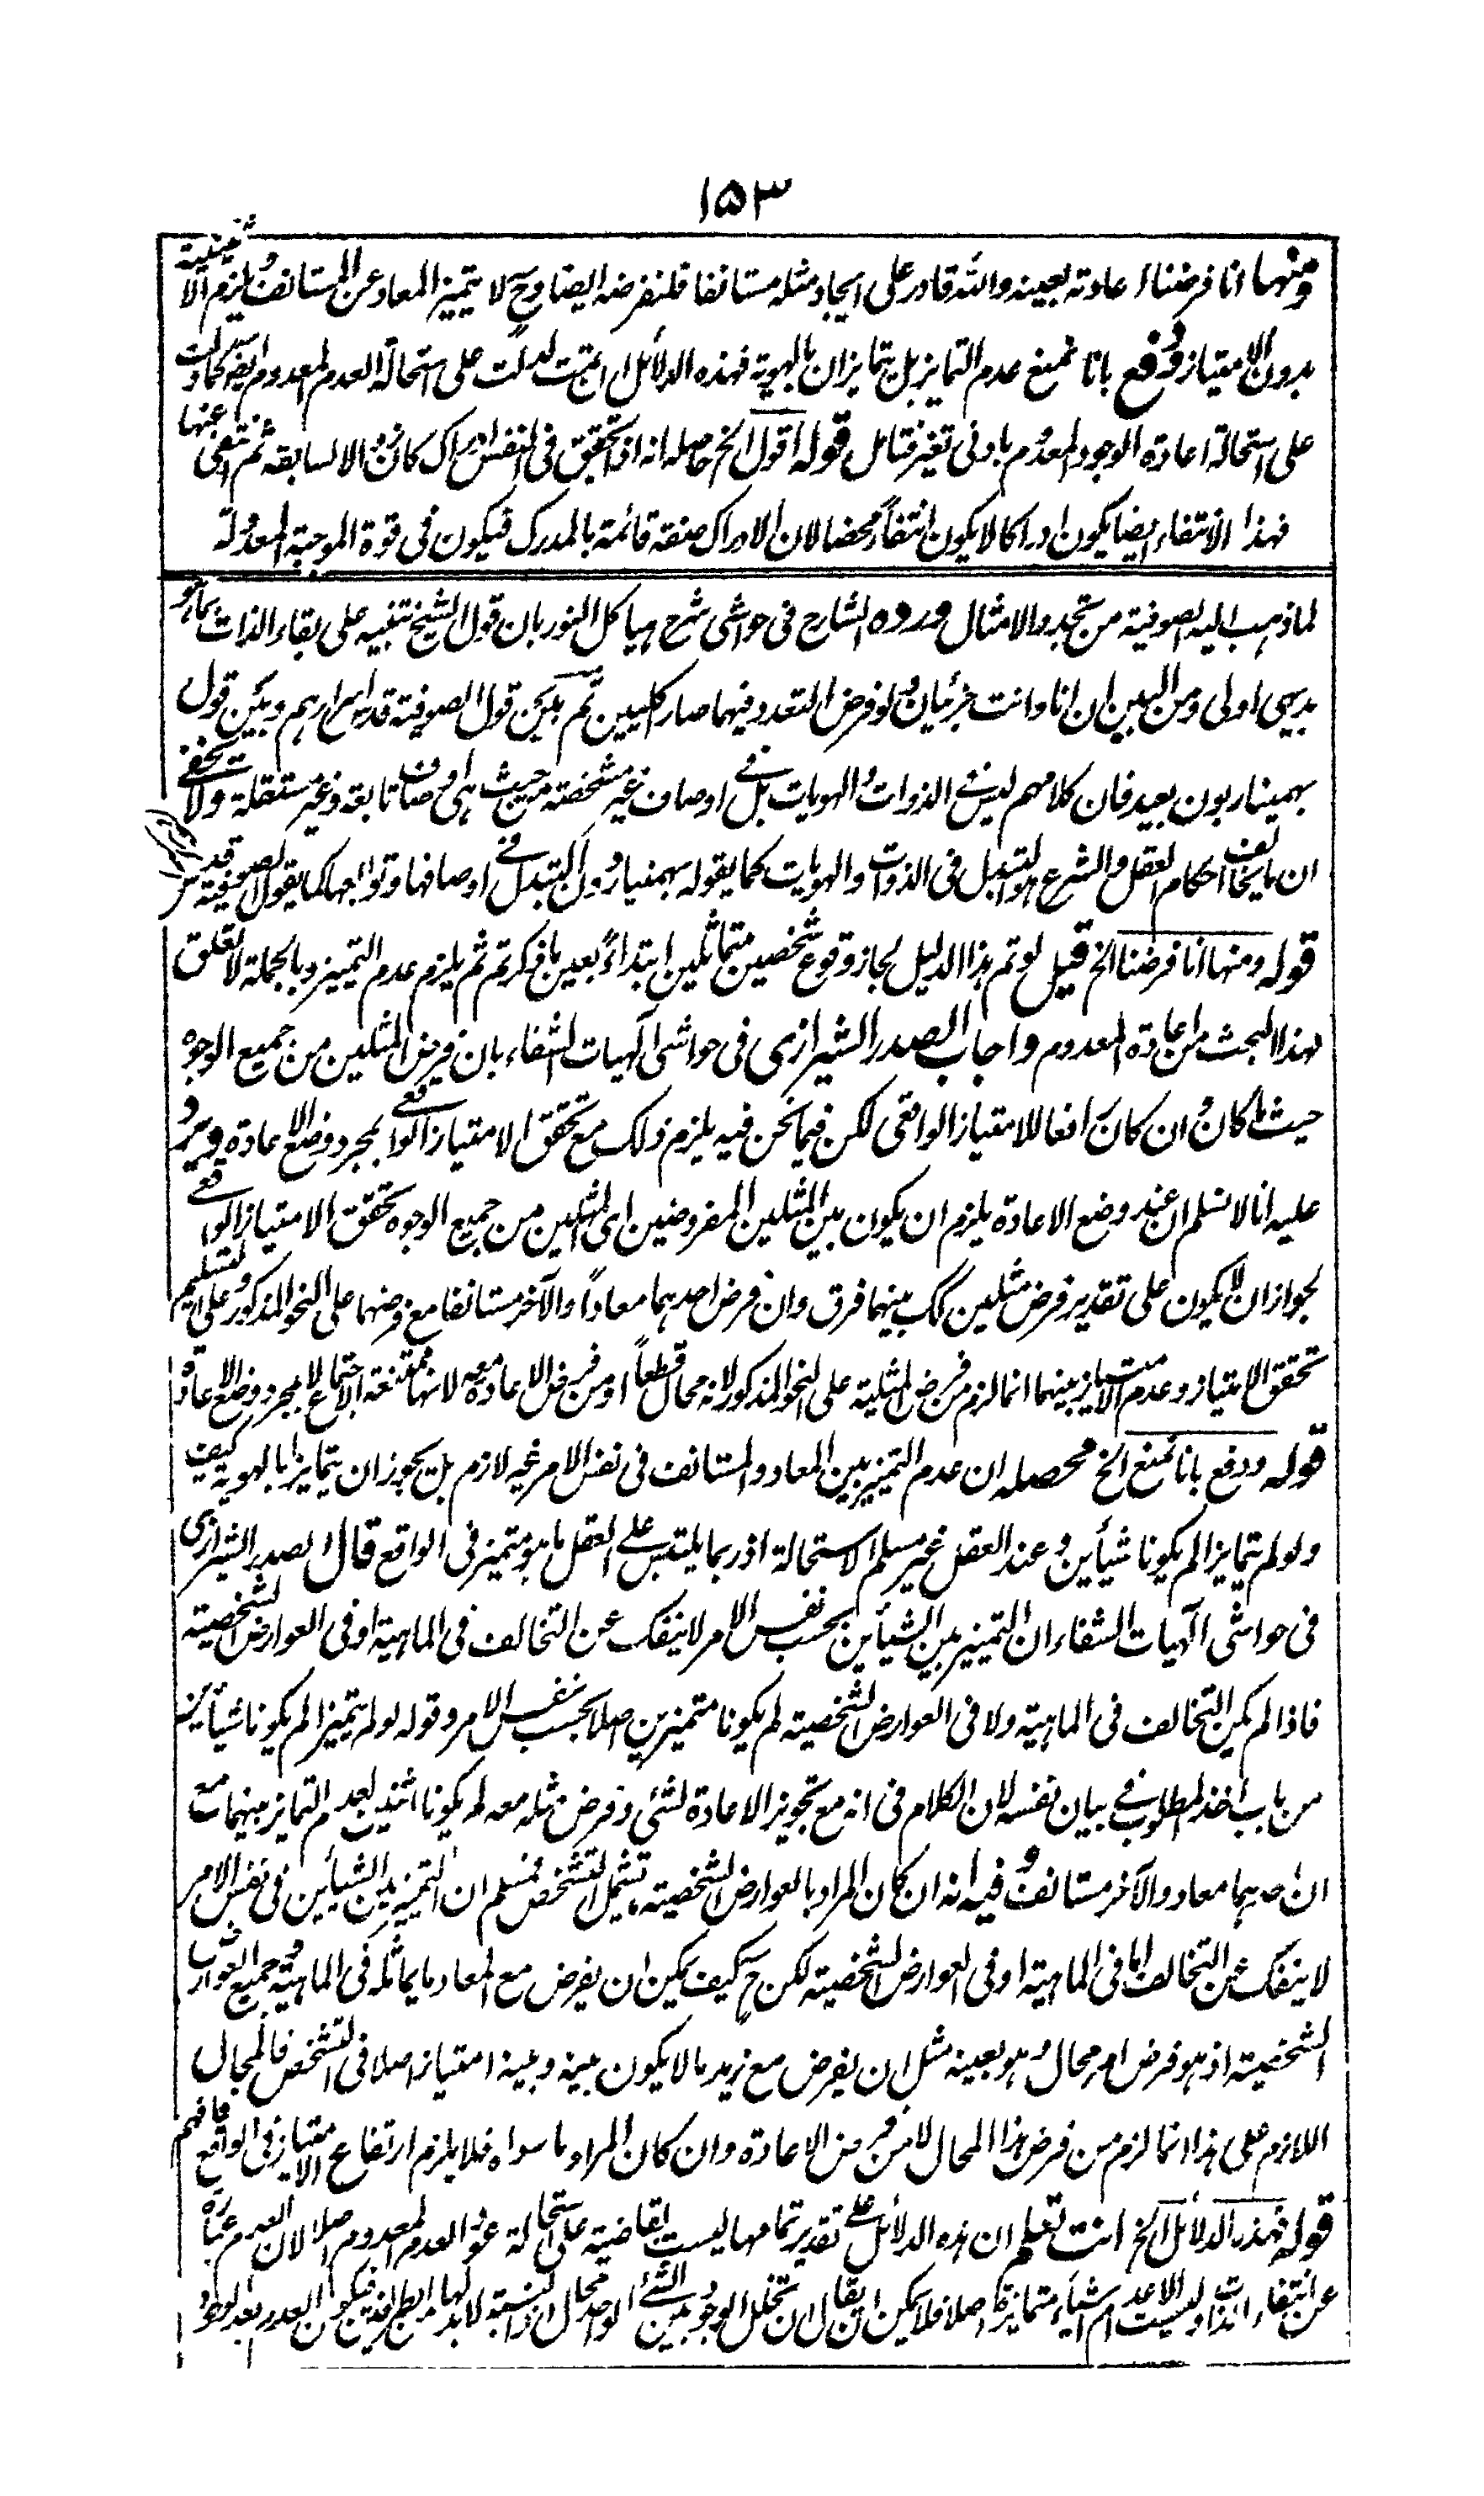 ١٥٣
ومنها انا فرضنا اعادته بعينه والله قادر على ايجاد مثله مستانفا فلنفرضه ايضا وح لا يتميز المعاد عن المستانف ويلزم الاثنينية
بدون الامتياز ودفع بانا نمنع عدم التمايز بل يتمايزان بالهوية فهذه الدلائل ان تمت لدلت على استحالة العدم المعدوم ايضا كما دلت
على استحالة اعادة الوجود المعدوم بادنى تغير فتامل قوله اقول الخ حاصله انه اذا تحقق فى النفس ادراك كان زوالا لسابقه ثم انتفى عنها
فهذا الانتفاء ايضا يكون ادراكا لا يكون انتفاء محضا لان الادراك صفة قائمة بالمدرك فيكون فى قوة الموجبة المعدولة
لما ذهب اليه الصوفية من تجدد الامثال ورده الشارح فى حواشى شرح هياكل النور بان قول الشيخ تنبيه على بقاء الذات بما هو
بديهى اولى ومن البين ان انا وانت جزئيان ولو فرض التعدد فيهما صارا كليين ثم بين قول الصوفية قدس اسرارهم وبين قول
بهمنيار بون بعيد فان كلامهم ليس فى الذوات والهويات بل فى اوصاف غير مشخصة من حيث هى اوصاف تابعة وغير مستقلة ولا يخفى
ان ما يخالف احكام العقل والشرع هو التبدل فى الذوات والهويات كما يقوله بهمنيار دون التبدل فى اوصافها وتوابعها كما يقول الصوفية قدس سر
قوله ومنها انا فرضنا الخ قيل لو تم هذا الدليل لجاز وقوع شخصين متماثلين ابتداء بعين ما ذكرتم ثم يلزم عدم التميز وبالجملة لا تعلق
لهذا المبحث من اعادة المعدوم واجاب الصدر الشيرازى فى حواشى الهيات الشفاء بان فرض المثلين من جميع الوجوه
حيثما كان وان كان رافعا للامتياز الواقعى لكن فيما نحن فيه يلزم ذلك مع تحقق الامتياز الواقعى لمجرد وضع الاعادة ويرد
عليه انا لا نسلم ان عند وضع الاعادة يلزم ان يكون بين المثلين المفروضين اى المثلين من جميع الوجوه تحقق الامتياز الواقعى
لجواز ان لا يكون على تقدير فرض مثلين كك بينهما فرق وان فرض احدهما معادا والآخر مستانفا مع فرضهما على النحو المذكور وعلى التسليم
تحقق الامتياز وعدم الامتياز بينهما انما لزم من فرض المثلية على النحو المذكور لانه محال قطعا او من فرض الاعادة معه لانها ممتنعة الاجتماع لا لمجرد وضع الاعادة
قوله ودفع بانا نمنع الخ محصله ان عدم التميز بين المعاد والمستانف فى نفس الامر غير لازم بل يجوز ان يتمايزا بالهوية كيف
ولو لم يتمايزا لم يكونا شيأين وعند العقل غير مسلم الاستحالة اذ ربما يلتبس على العقل ما هو متميز فى الواقع قال الصدر الشيرازى
فى حواشى الهيات الشفاء ان التميز بين الشيأين بحسب نفس الامر لا ينفك عن التخالف فى الماهية او فى العوارض الشخصية
فاذا لم يكن التخالف فى الماهية ولا فى العوارض الشخصية لم يكونا متميزين اصلا بحسب نفس الامر وقوله لو لم يتميزا لم يكونا شيأين
من باب اخذ المطلوب فى بيان نفسه لان الكلام فى انه مع تجويز الاعادة لشئ وفرض مثله معه لم يكونا اثنين لعدم التمايز بينهما مع
ان احدهما معاد والآخر مستانف وفيه انه ان كان المراد بالعوارض الشخصية يشمل التشخص فمسلم ان التميز بين الشيأين فى نفس الامر
لا ينفك عن التخالف اما فى الماهية او فى العوارض الشخصية لكن ح كيف يمكن ان يفرض مع المعاد ما يماثله فى الماهية وجميع العوارض
الشخصية اذ هو فرض امر محال وهو بعينه مثل ان يفرض مع زيد ما لا يكون بينه وبينه امتياز اصلا فى التشخص فالمحال
اللازم على هذا انما لزم من فرض هذا المحال لا من فرض الاعادة وان كان المراد ما سواه فلا يلزم ارتفاع الامتياز فى الواقع فافهم
قوله فهذه الدلائل الخ انت تعلم ان هذه الدلائل على تقدير تمامها ليست بقاضية على استحالة عود العدم المعدوم اصلا لان العدم عبارة
عن انتفاء الذات وليست الاعدام اشياء متمايزة اصلا فلا يمكن ان يقال ان تخلل الوجود بين الشئ الواحد محال اذ النسبة لا بد لها من الطرفين فيكون العدم بعد الوجود